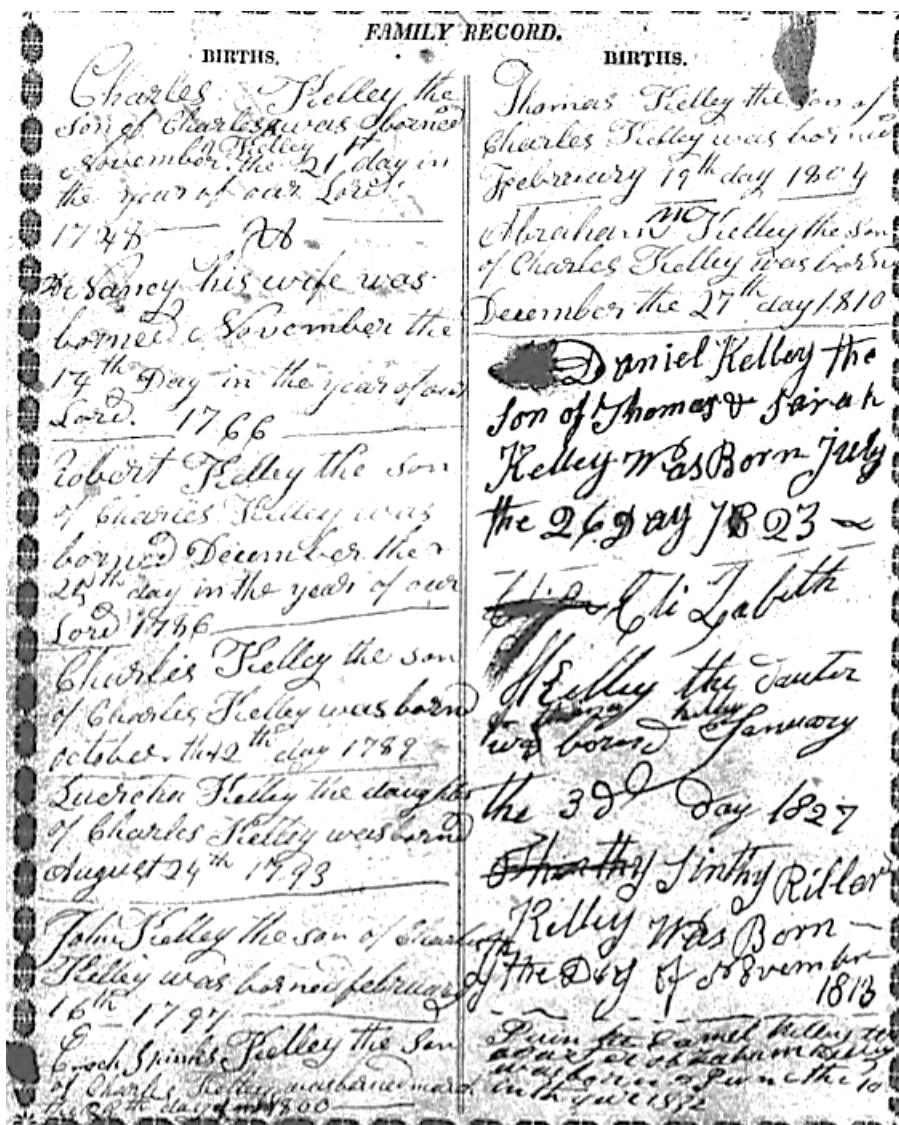 FAMILY RECORD.
BIRTHS.
Charles Kelley the
son of Charles was borned
Kelley
November the 21st day in
the year of our Lord
1748
his wife was
borned November the
14th Day in the year of our
Lord. 1766
Robert Kelley the son
of Charles Kelley was
borned December the
25th day in the year of our
Lord 1786
Charles Kelley the son
of Charles Kelley was borned
october the 2th day 1789
Lucretia Kelley the daughter
of Charles Kelley was borned
August 24th 1793
John Kelley the son of Charles
Kelley was borned february
16th 1797
Enoch Spinks Kelley the son
of Charles Kelley was borned march
the day 1800
BIRTHS.
Thomas Kelley the son of
Charles Kelley was borned
February 19th day 1804
Abraham Kelley the son
of Charles Kelley was borned
December the 27th day 1810
Daniel Kelley the
son of Thomas & Sarah
Kelley Was Born July
the 26 Day 1823
Eli Zabeth
Kelley the Dauter
Kelley
was bornd January
the 3d Day 1827
Sinthy Riller
Kelley Was Born
the Day of Novembr
1813
Kelley the
was born June the 10
in the year